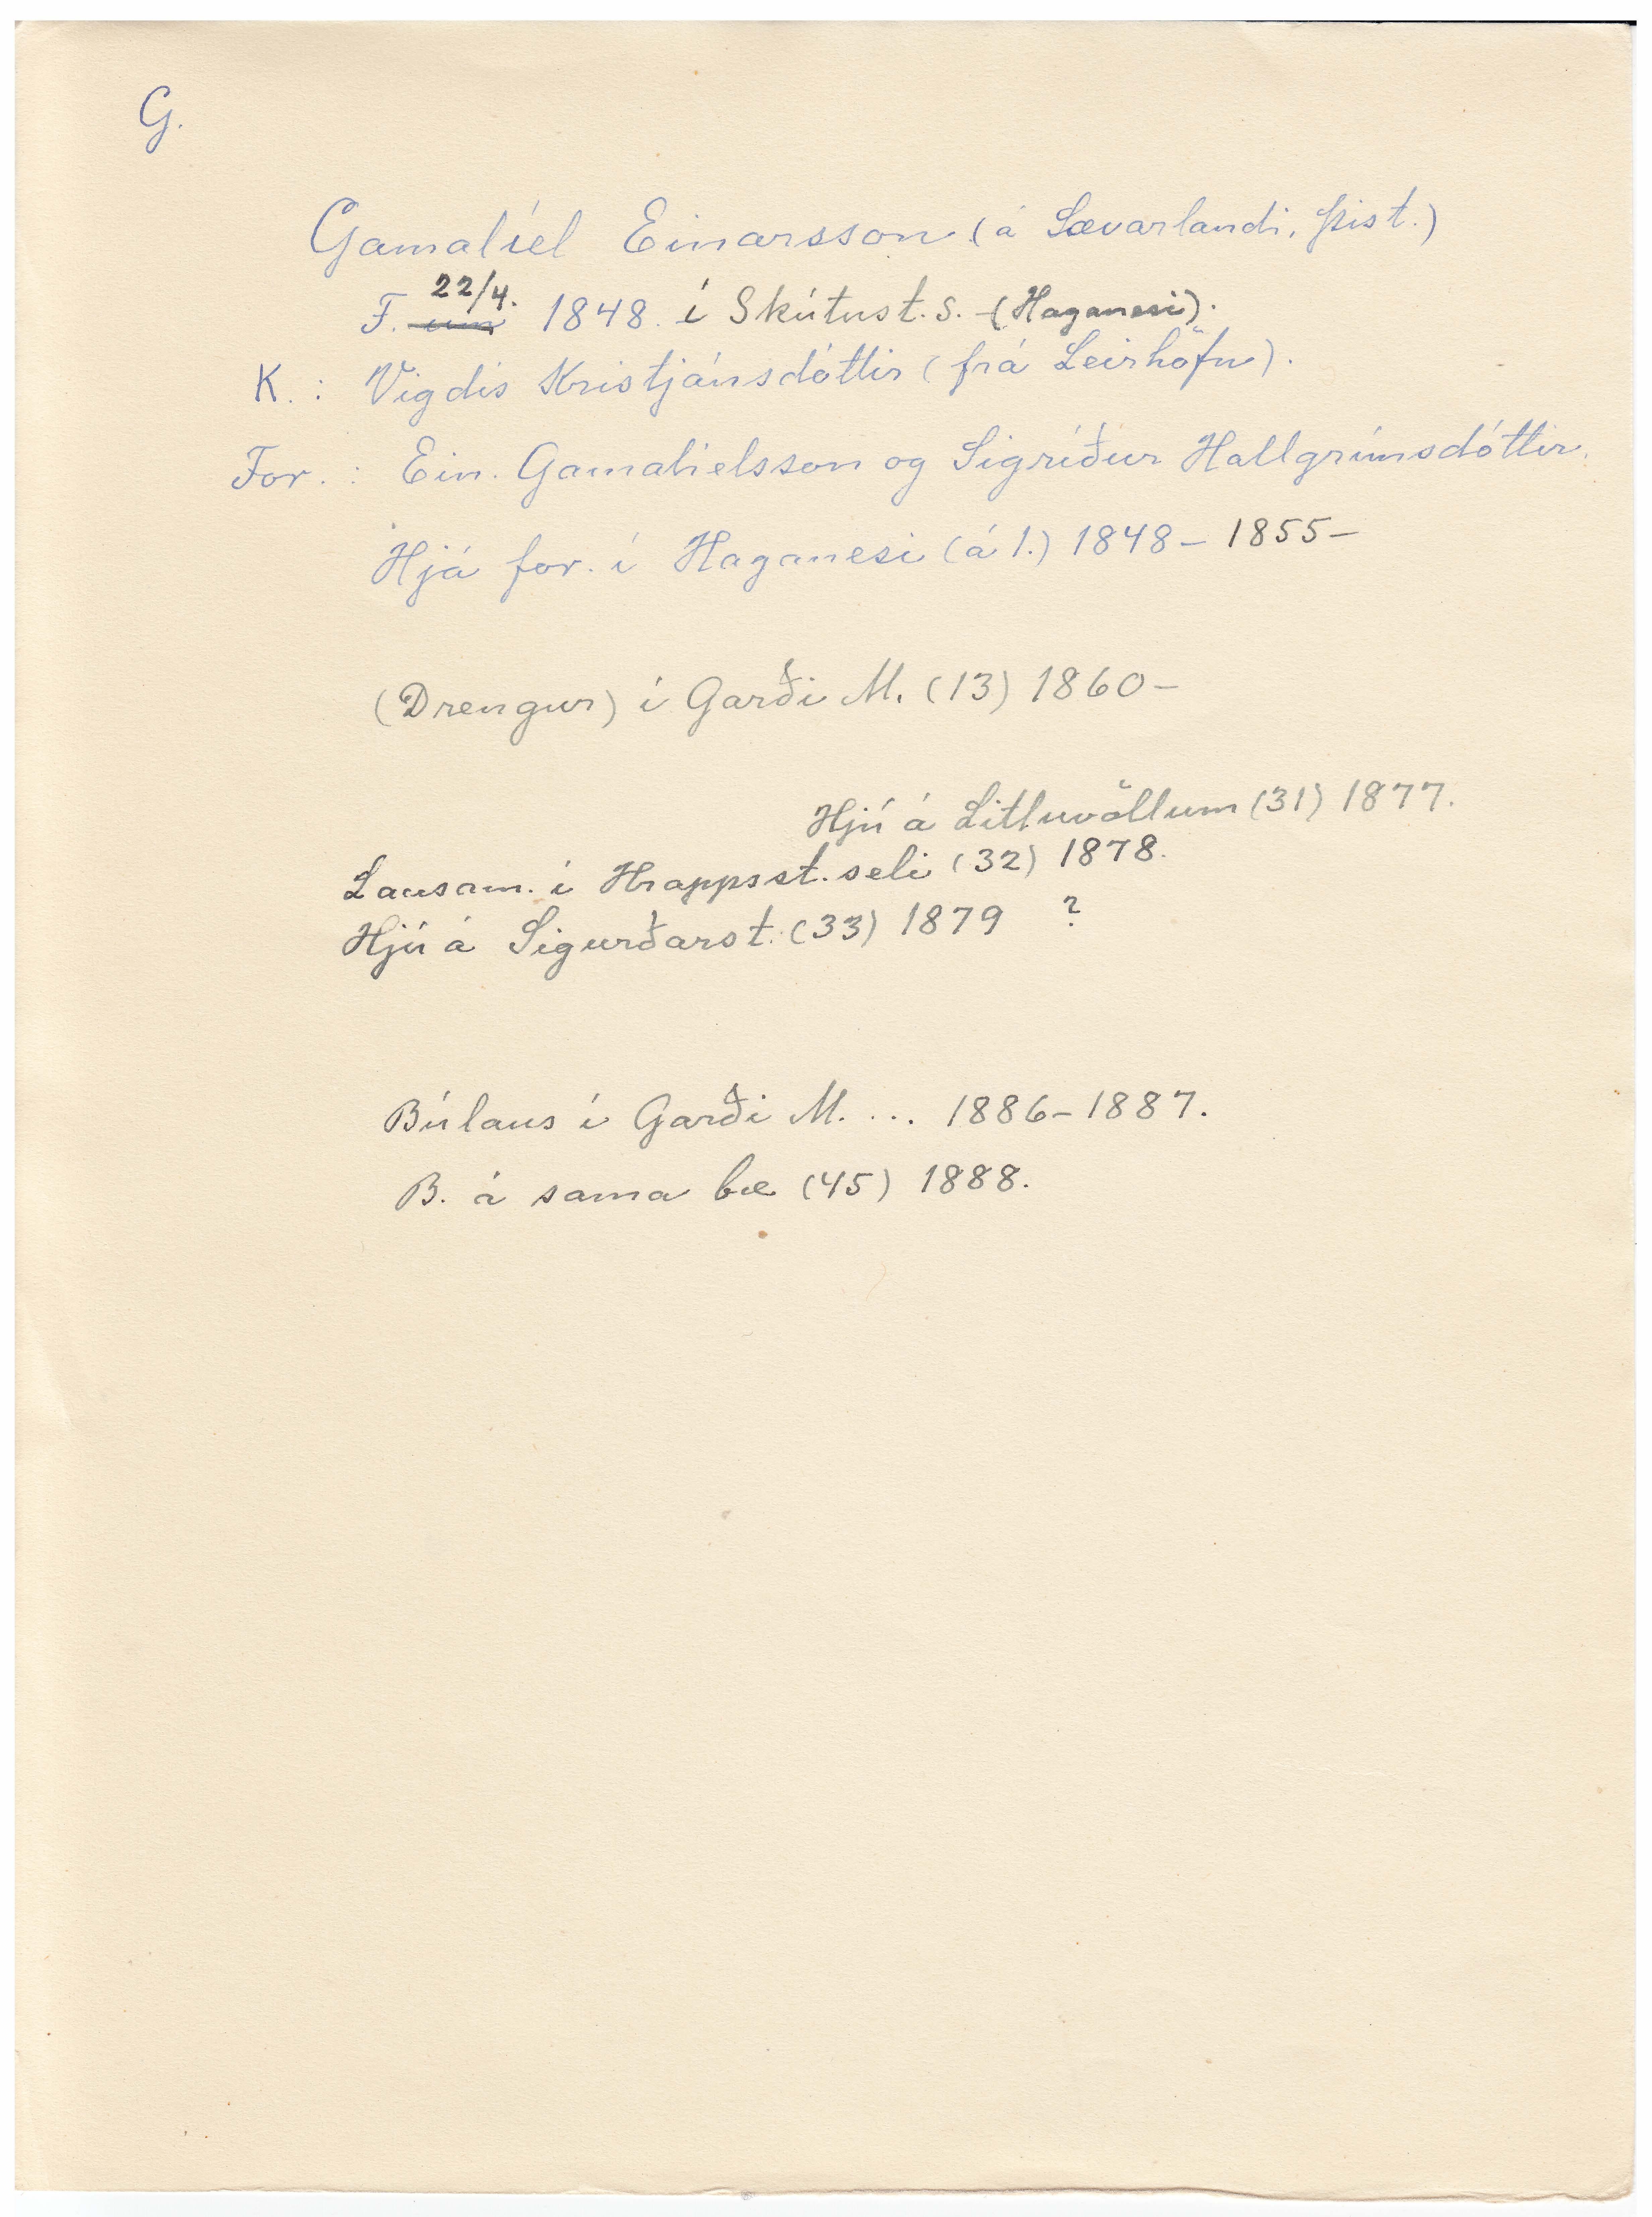 G.
Gamalíel Einarsson (á Sævarlandi, Þist.)
22/4.
F. um 1848. í Skútust.s. (Haganesi).
K. : Vigdís Kristjánsdóttir (frá Leirhöfn).
For. : Ein. Gamalíelsson og Sigríður Hallgrímsdóttir.
Hjá for. í Haganesi (á 1.) 1848 – 1855 –
(Drengur) í Garði M. (13) 1860 –
Hjú á Litluvöllum (31) 1877.
Lausam. í Hrappsst.seli (32) 1878.
Hjú á Sigurðarst. (33) 1879 ?
Búlaus í Garði M. ... 1886 – 1887.
B. á sama bæ (45) 1888.